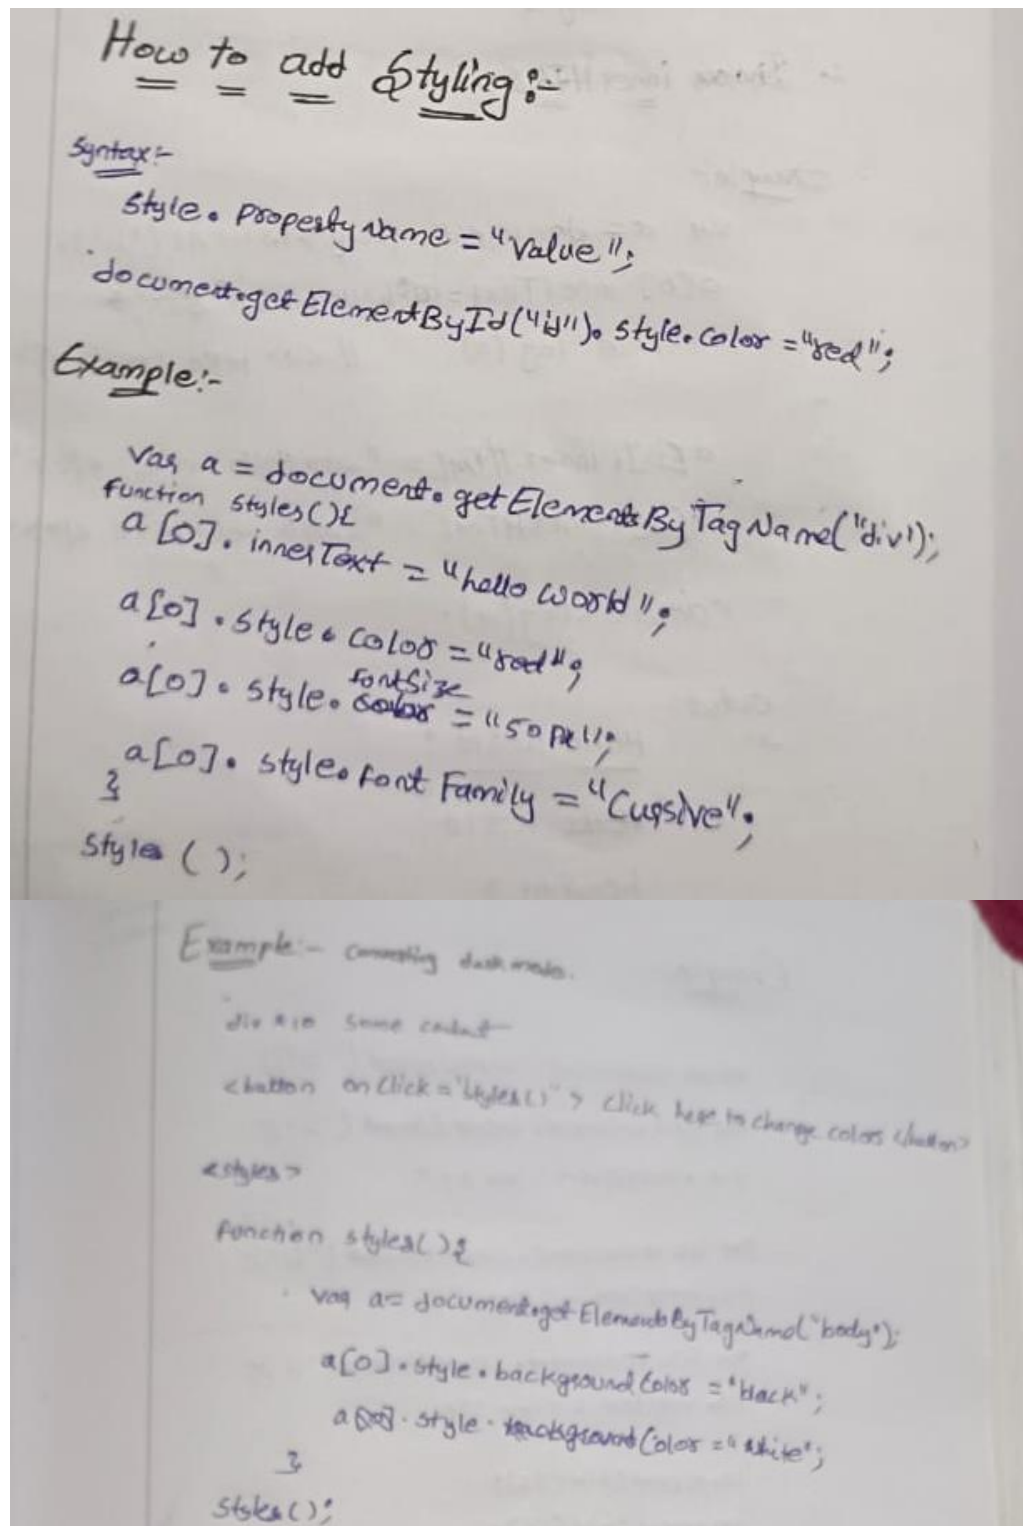 How to add Styling:-
Syntax:-
Style. PropertyName = "Value";
document.getElementById("id"). style.color = "red";
Example:-
Var a = document.getElementsByTagName("div');
function styles(){
a[0]. innerText = "hello world";
a[0].style.color = "red";
a[0]. style. fontSize = "50px";
a[0]. style.font Family = "Cursive";
}
Styles ( );
Example:- dark mode.
div *10 some
<button onClick="styles()"> click here to change colors </button>
<styles>
function styles(){
var a= document.getElementsByTagName("body");
a[0].style.backgroundColor = "black";
style. backgroundColor = "white";
}
Styles();